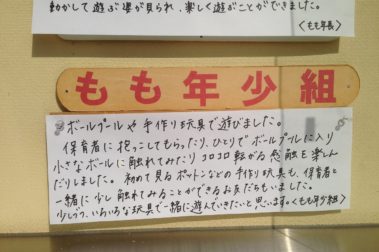 動かして遊ぶ姿が見られ、楽しく遊ぶことができました。
〈もも年長〉
もも年少組
ボールプールや手作り玩具で遊びました。
保育者に抱っこしてもらったり、ひとりでボールプールに入り
小さなボールに触れてみたりコロコロ転がる感触を楽しん
だりしました。初めて見るポットンなどの手作り玩具も、保育者と
一緒に少し触れてみることができるお友だちもいました。
少しずつ、いろいろな玩具で一緒に遊んでいきたいと思います。〈もも年少組〉